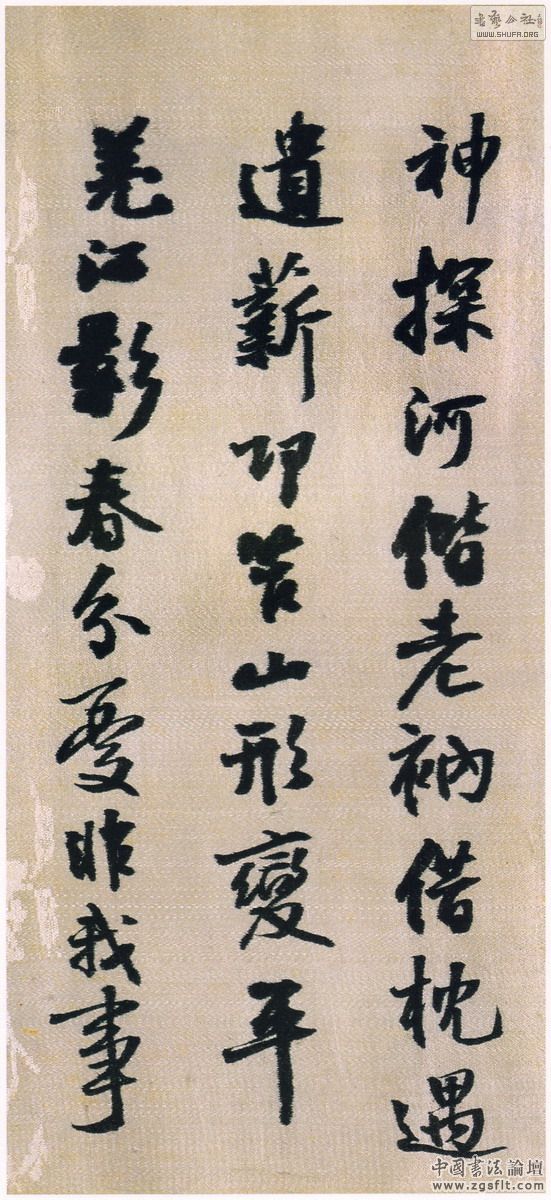 書藝公社
WWW.SHUFA.ORG
神探河偕老衲借枕遇
遺薪卭笮山形變平
羌江影春分憂非我事
中國書法論壇
www.zgsflt.com